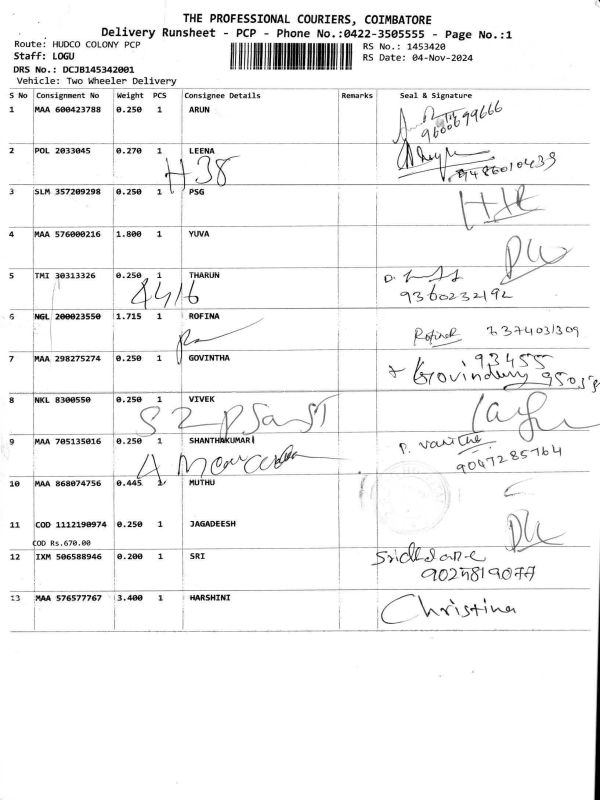 THE PROFESSIONAL COURIERS, COIMBATORE
Delivery Runsheet - PCP - Phone No.:0422-3505555 - Page No.:1
Route: HUDCO COLONY PCP
RS No.: 1453420
Staff: LOGU
RS Date: 04-Nov-2024
DRS No.: DCJB145342001
Vehicle: Two Wheeler Delivery
S No Consignment No Weight PCS Consignee Details Remarks Seal & Signature
1 MAA 600423788 0.250 1 ARUN
9600699666
2 POL 2033045 0.270 1 LEENA
H 38 9486010439
3 SLM 357209298 0.250 1 PSG
4 MAA 576000216 1.800 1 YUVA
5 TMI 30313326 0.250 1 THARUN
4416 9360232192
6 NGL 200023550 1.715 1 ROFINA
7 MAA 298275274 0.250 1 GOVINTHA
93455
8 NKL 8300550 0.250 1 VIVEK
9 MAA 705135016 0.250 1 SHANTHAKUMARI
9047285764
10 MAA 868074756 0.445 1 MUTHU
11 COD 1112190974 0.250 1 JAGADEESH
COD Rs.670.00
12 IXM 506588946 0.200 1 SRI
9025819077
13 MAA 576577767 3.400 1 HARSHINI Christina